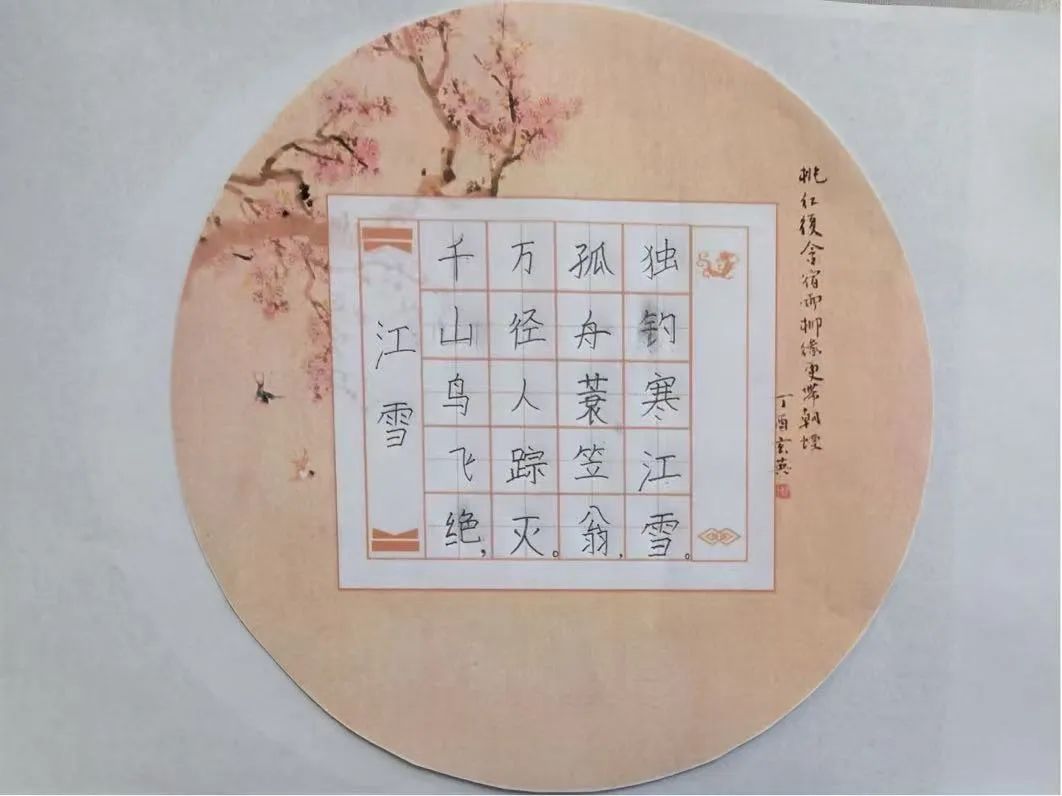 江雪
千山鸟飞绝，
万径人踪灭。
孤舟蓑笠翁，
独钓寒江雪。
桃红復含宿雨柳绿更带朝烟
丁酉玄英